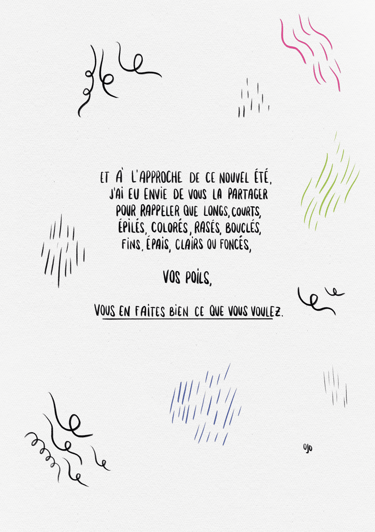 ET À L'APPROCHE DE CE NOUVEL ÉTÉ,
J'AI EU ENVIE DE VOUS LA PARTAGER
POUR RAPPELER QUE LONGS, COURTS,
ÉPILÉS, COLORÉS, RASÉS, BOUCLÉS,
FINS, ÉPAIS, CLAIRS OU FONCÉS,
VOS POILS,
VOUS EN FAITES BIEN CE QUE VOUS VOULEZ.